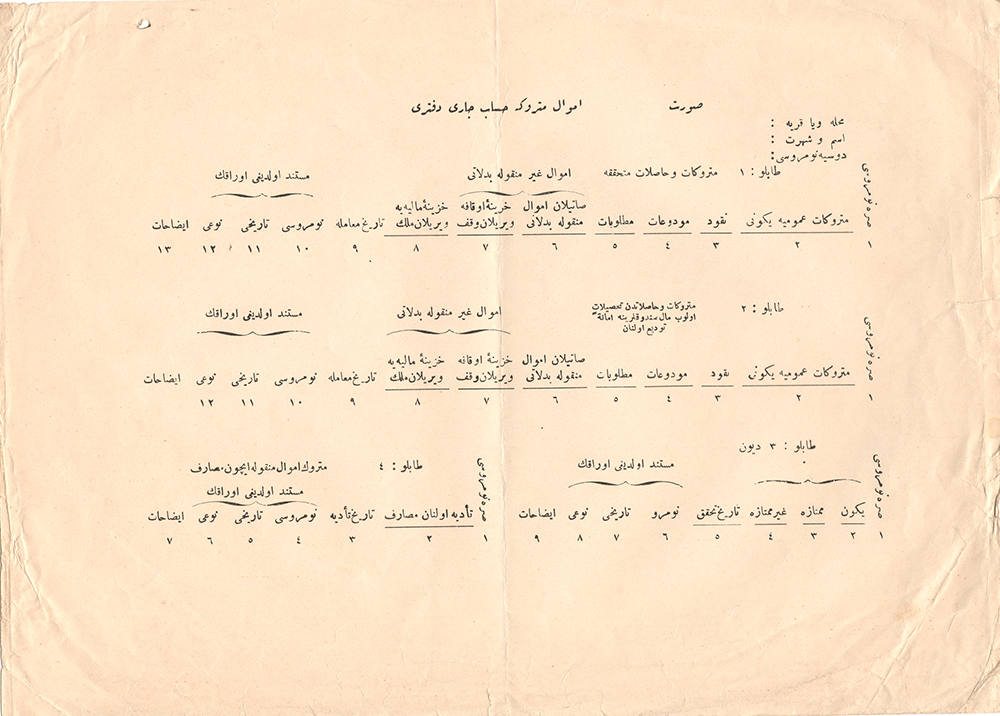 صورت اموال متروكه حساب جاری دفتری
محله ویا قریه :
اسم و شهرت :
دوسیه نومروسی:
طابلو : ١ متروكات و حاصلات متحققه اموال غیر منقوله بدلاتی مستند اولدیغی اوراقك
صره نومروسی متروكات عمومیه یكونی نقود مودوعات مطلوبات صاتیلان اموال منقوله بدلاتی خزینهٔ اوقافه ویریلان وقف خزینهٔ مالیه یه ویریلان ملك تاریخ معامله نومروسی تاریخی نوعی ایضاحات
١ ٢ ٣ ٤ ٥ ٦ ٧ ٨ ٩ ١٠ ١١ ١٢ ١٣
طابلو : ٢ متروكات و حاصلاتدن تحصیلات اولوب مال صندوقلرینه امانةً تودیع اولنان اموال غیر منقوله بدلاتی مستند اولدیغی اوراقك
صره نومروسی متروكات عمومیه یكونی نقود مودوعات مطلوبات صاتیلان اموال منقوله بدلاتی خزینهٔ اوقافه ویریلان وقف خزینهٔ مالیه یه ویریلان ملك تاریخ معامله نومروسی تاریخی نوعی ایضاحات
١ ٢ ٣ ٤ ٥ ٦ ٧ ٨ ٩ ١٠ ١١ ١٢
طابلو : ٣ دیون
مستند اولدیغی اوراقك
صره نومروسی یكون ممتازه غیر ممتازه تاریخ تحقق نومرو تاریخی نوعی ایضاحات
١ ٢ ٣ ٤ ٥ ٦ ٧ ٨ ٩
طابلو : ٤ متروك اموال منقوله ایچون مصارف
مستند اولدیغی اوراقك
صره نومروسی تأدیه اولنان مصارف تاریخ تأدیه نومروسی تاریخی نوعی ایضاحات
١ ٢ ٣ ٤ ٥ ٦ ٧